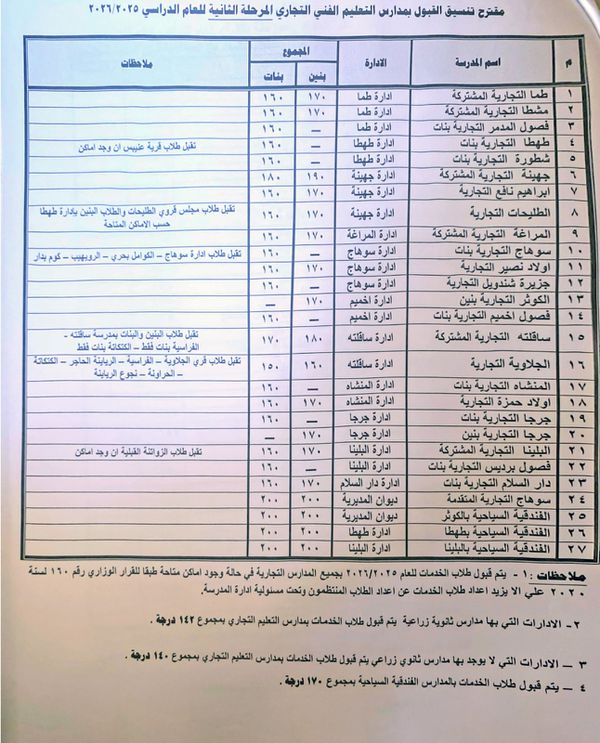 مقترح تنسيق القبول بمدارس التعليم الفني التجاري المرحلة الثانية للعام الدراسي ٢٠٢٦/٢٠٢٥
م | اسم المدرسة | الادارة | المجموع | ملاحظات
بنين | بنات
١ | طما التجارية المشتركة | ادارة طما | ١٧٠ | ١٦٠
٢ | مشطا التجارية المشتركة | ادارة طما | ١٧٠ | ١٦٠
٣ | فصول المدمر التجارية بنات | ادارة طما | — | ١٦٠
٤ | طهطا التجارية بنات | ادارة طهطا | — | ١٦٠ | تقبل طلاب قرية عنيبس ان وجد اماكن
٥ | شطورة التجارية بنات | ادارة طهطا | — | ١٦٠
٦ | جهينة التجارية المشتركة | ادارة جهينة | ١٩٠ | ١٨٠
٧ | ابراهيم نافع التجارية | ادارة جهينة | ١٧٠ | ١٦٠
٨ | الطليحات التجارية | ادارة جهينة | ١٧٠ | ١٦٠ | تقبل طلاب مجلس قروي الطليحات والطلاب البنين بإدارة طهطا
حسب الاماكن المتاحة
٩ | المراغة التجارية المشتركة | ادارة المراغة | ١٧٠ | ١٦٠
١٠ | سوهاج التجارية بنات | ادارة سوهاج | — | ١٦٠ | تقبل طلاب ادارة سوهاج – الكوامل بحري – الرويهيب – كوم بدار
١١ | اولاد نصير التجارية | ادارة سوهاج | ١٧٠ | ١٦٠
١٢ | جزيرة شندويل التجارية | ادارة سوهاج | ١٧٠ | ١٦٠
١٣ | الكوثر التجارية بنين | ادارة اخميم | ١٧٠ | —
١٤ | فصول اخميم التجارية بنات | ادارة اخميم | — | ١٦٠
١٥ | ساقلته التجارية المشتركة | ادارة ساقلته | ١٨٠ | ١٧٠ | تقبل طلاب البنين والبنات بمدرسة ساقلته –
الفراسية بنات فقط – الكتكاتة بنات فقط
١٦ | الجلاوية التجارية | ادارة ساقلته | ١٦٠ | ١٥٠ | تقبل طلاب قري الجلاوية – الفراسية – الرياينة الحاجر – الكتكاتة
– الحراونة – نجوع الرياينة
١٧ | المنشاه التجارية بنات | ادارة المنشاه | — | ١٦٠
١٨ | اولاد حمزة التجارية | ادارة المنشاه | ١٧٠ | ١٦٠
١٩ | جرجا التجارية بنات | ادارة جرجا | — | ١٦٠
٢٠ | جرجا التجارية بنين | ادارة جرجا | ١٧٠ | —
٢١ | البلينا التجارية المشتركة | ادارة البلينا | ١٧٠ | ١٦٠ | تقبل طلاب الزواتنة القبلية ان وجد اماكن
٢٢ | فصول برديس التجارية بنات | ادارة البلينا | — | ١٦٠
٢٣ | دار السلام التجارية بنات | ادارة دار السلام | ١٧٠ | ١٦٠
٢٤ | سوهاج التجارية المتقدمة | ديوان المديرية | ٢٠٠ | ٢٠٠
٢٥ | الفندقية السياحية بالكوثر | ديوان المديرية | ٢٠٠ | ٢٠٠
٢٦ | الفندقية السياحية بطهطا | ادارة طهطا | ٢٠٠ | ٢٠٠
٢٧ | الفندقية السياحية بالبلينا | ادارة البلينا | ٢٠٠ | ٢٠٠
ملاحظات : ١ - يتم قبول طلاب الخدمات للعام ٢٠٢٦/٢٠٢٥ بجميع المدارس التجارية في حالة وجود اماكن متاحة طبقا للقرار الوزاري رقم ١٦٠ لسنة
٢٠٢٠ علي الا يزيد اعداد طلاب الخدمات عن اعداد الطلاب المنتظمون وتحت مسئولية ادارة المدرسة.
٢- الادارات التي بها مدارس ثانوية زراعية يتم قبول طلاب الخدمات بمدارس التعليم التجاري بمجموع ١٤٢ درجة .
٣ – الادارات التي لا يوجد بها مدارس ثانوي زراعي يتم قبول طلاب الخدمات بمدارس التعليم التجاري بمجموع ١٤٠ درجة .
٤ – يتم قبول طلاب الخدمات بالمدارس الفندقية السياحية بمجموع ١٧٠ درجة .